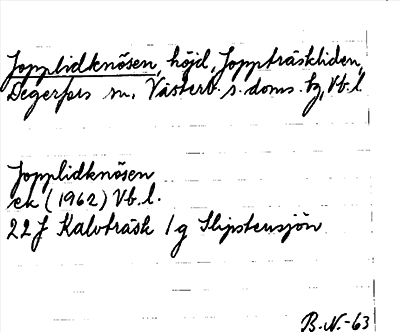 Jopplidknösen, höjd, Joppträskliden,
Degerfors sn. Västerb. s. doms. tg, Vb. l.
Jopplidknösen
ek (1962) Vb. l.
22 J Kalvträsk 1g Slipstensjön
B.N.-63